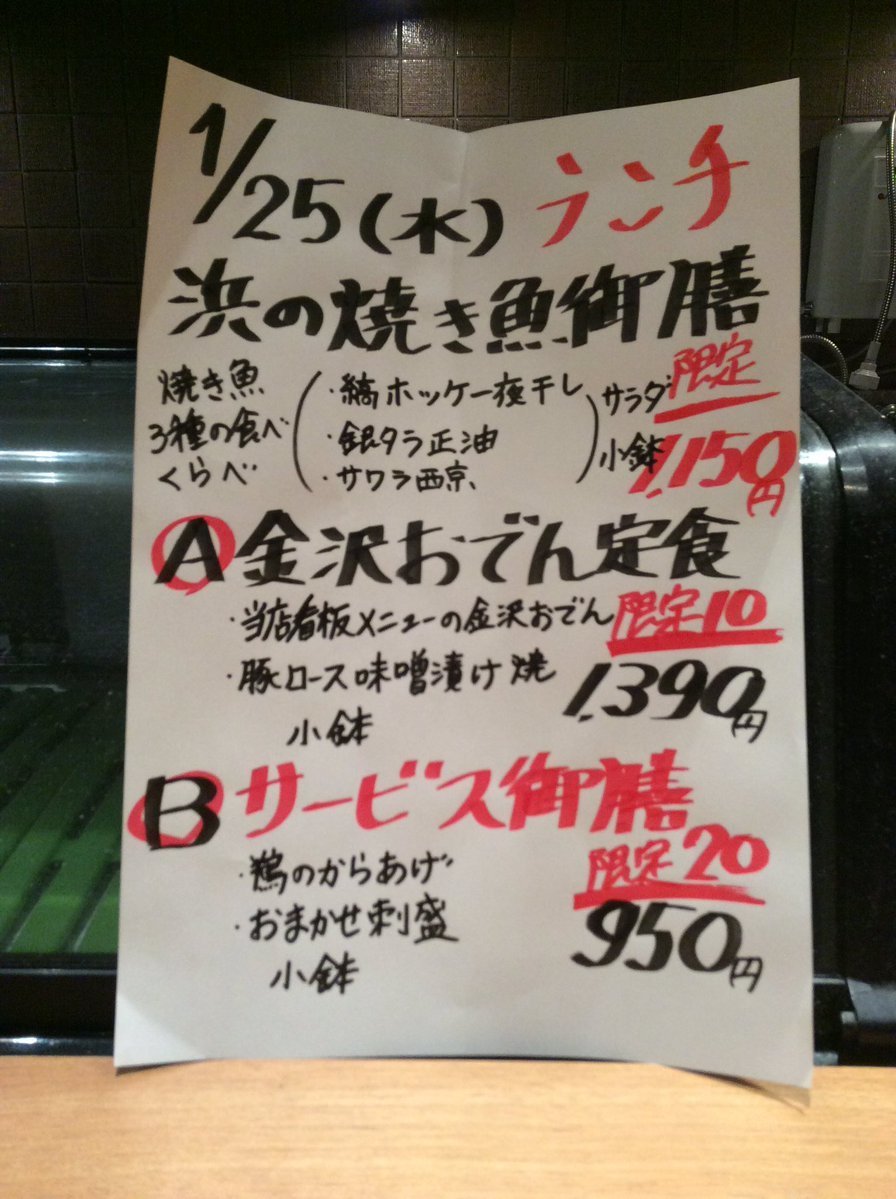 1/25(水) ランチ
浜の焼き魚御膳
限定
焼き魚
3種の食べ
くらべ
・縞ホッケ一夜干し
・銀タラ正油
・サワラ西京
サラダ
小鉢
1,150円
A金沢おでん定食
・当店看板メニューの金沢おでん
限定10
・豚ロース味噌漬け焼
小鉢
1,390円
Bサービス御膳
限定20
・鶏のからあげ
・おまかせ刺盛
小鉢
950円